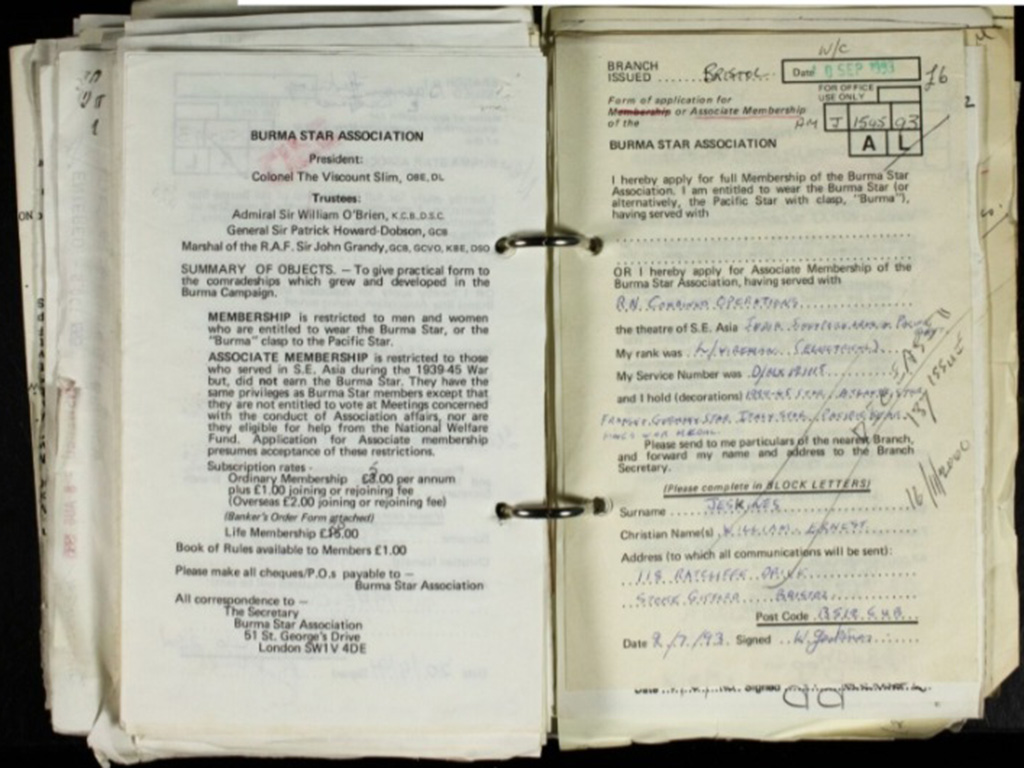 BURMA STAR ASSOCIATION
President:
Colonel The Viscount Slim, OBE, DL
Trustees:
Admiral Sir William O'Brien, K.C.B. D.S.C.
General Sir Patrick Howard-Dobson, GCB
Marshal of the R.A.F. Sir John Grandy, GCB, GCVO, KBE, DSO
SUMMARY OF OBJECTS. — To give practical form to
the comradeships which grew and developed in the
Burma Campaign.
MEMBERSHIP is restricted to men and women
who are entitled to wear the Burma Star, or the
"Burma" clasp to the Pacific Star.
ASSOCIATE MEMBERSHIP is restricted to those
who served in S.E. Asia during the 1939-45 War
but, did not earn the Burma Star. They have the
same privileges as Burma Star members except that
they are not entitled to vote at Meetings concerned
with the conduct of Association affairs, nor are
they eligible for help from the National Welfare
Fund. Application for Associate membership
presumes acceptance of these restrictions.
Subscription rates -
Ordinary Membership £3.00 per annum
plus £1.00 joining or rejoining fee
(Overseas £2.00 joining or rejoining fee)
(Banker's Order Form attached)
Life Membership
Book of Rules available to Members £1.00
Please make all cheques/P.O.s payable to —
Burma Star Association
All correspondence to —
The Secretary
Burma Star Association
51 St. George's Drive
London SW1V 4DE
W/C
BRANCH
ISSUED BRISTOL Date SEP 1993 £6
FOR OFFICE
USE ONLY
Form of application for
Membership or Associate Membership
of the
J 1545 93
A L
BURMA STAR ASSOCIATION
I hereby apply for full Membership of the Burma Star
Association. I am entitled to wear the Burma Star (or
alternatively, the Pacific Star with clasp, "Burma"),
having served with
OR I hereby apply for Associate Membership of the
Burma Star Association, having served with
R.N. COMBINED OPERATIONS
the theatre of S.E. Asia INDIA
My rank was L/WIREMAN (ELECTRICAL)
My Service Number was
and I hold (decorations) ATLANTIC STAR
FRANCE & GERMANY STAR ITALY STAR
WAR MEDAL
Please send to me particulars of the nearest Branch,
and forward my name and address to the Branch
Secretary.
ISSUE
16/11/2000
(Please complete in BLOCK LETTERS)
Surname JESKINS
Christian Name(s) WILLIAM ERNEST
Address (to which all communications will be sent):
118 RATCLIFFE DRIVE
STOKE GIFFORD BRISTOL
Post Code
Date 2/7/93 Signed W. Jeskins